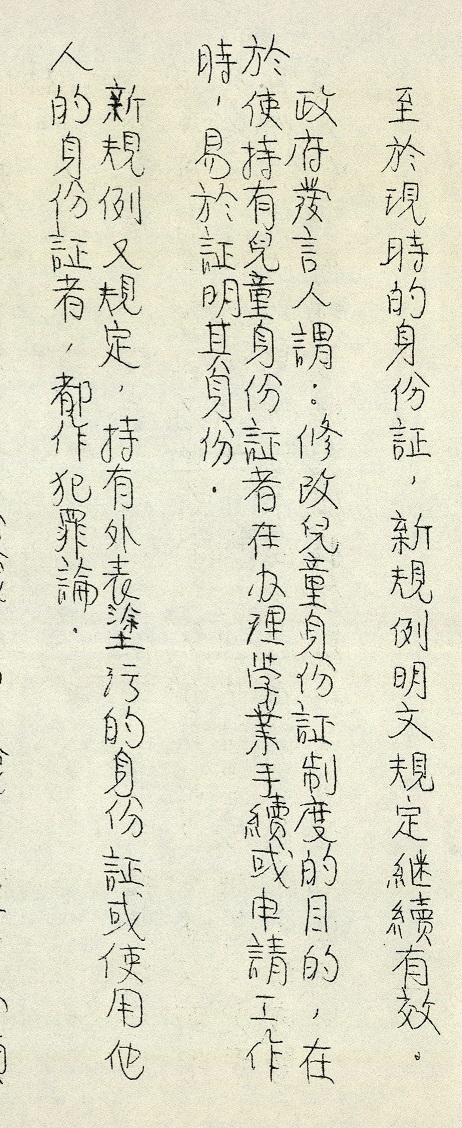 至於現時的身份証，新規例明文規定継續有效。
政府發言人謂：修改兒童身份証制度的目的，在
於使持有兒童身份証者在办理学業手續或申請工作
時，易於証明其身份．
新規例又規定，持有外表塗污的身份証或使用他
人的身份証者，都作犯罪論．